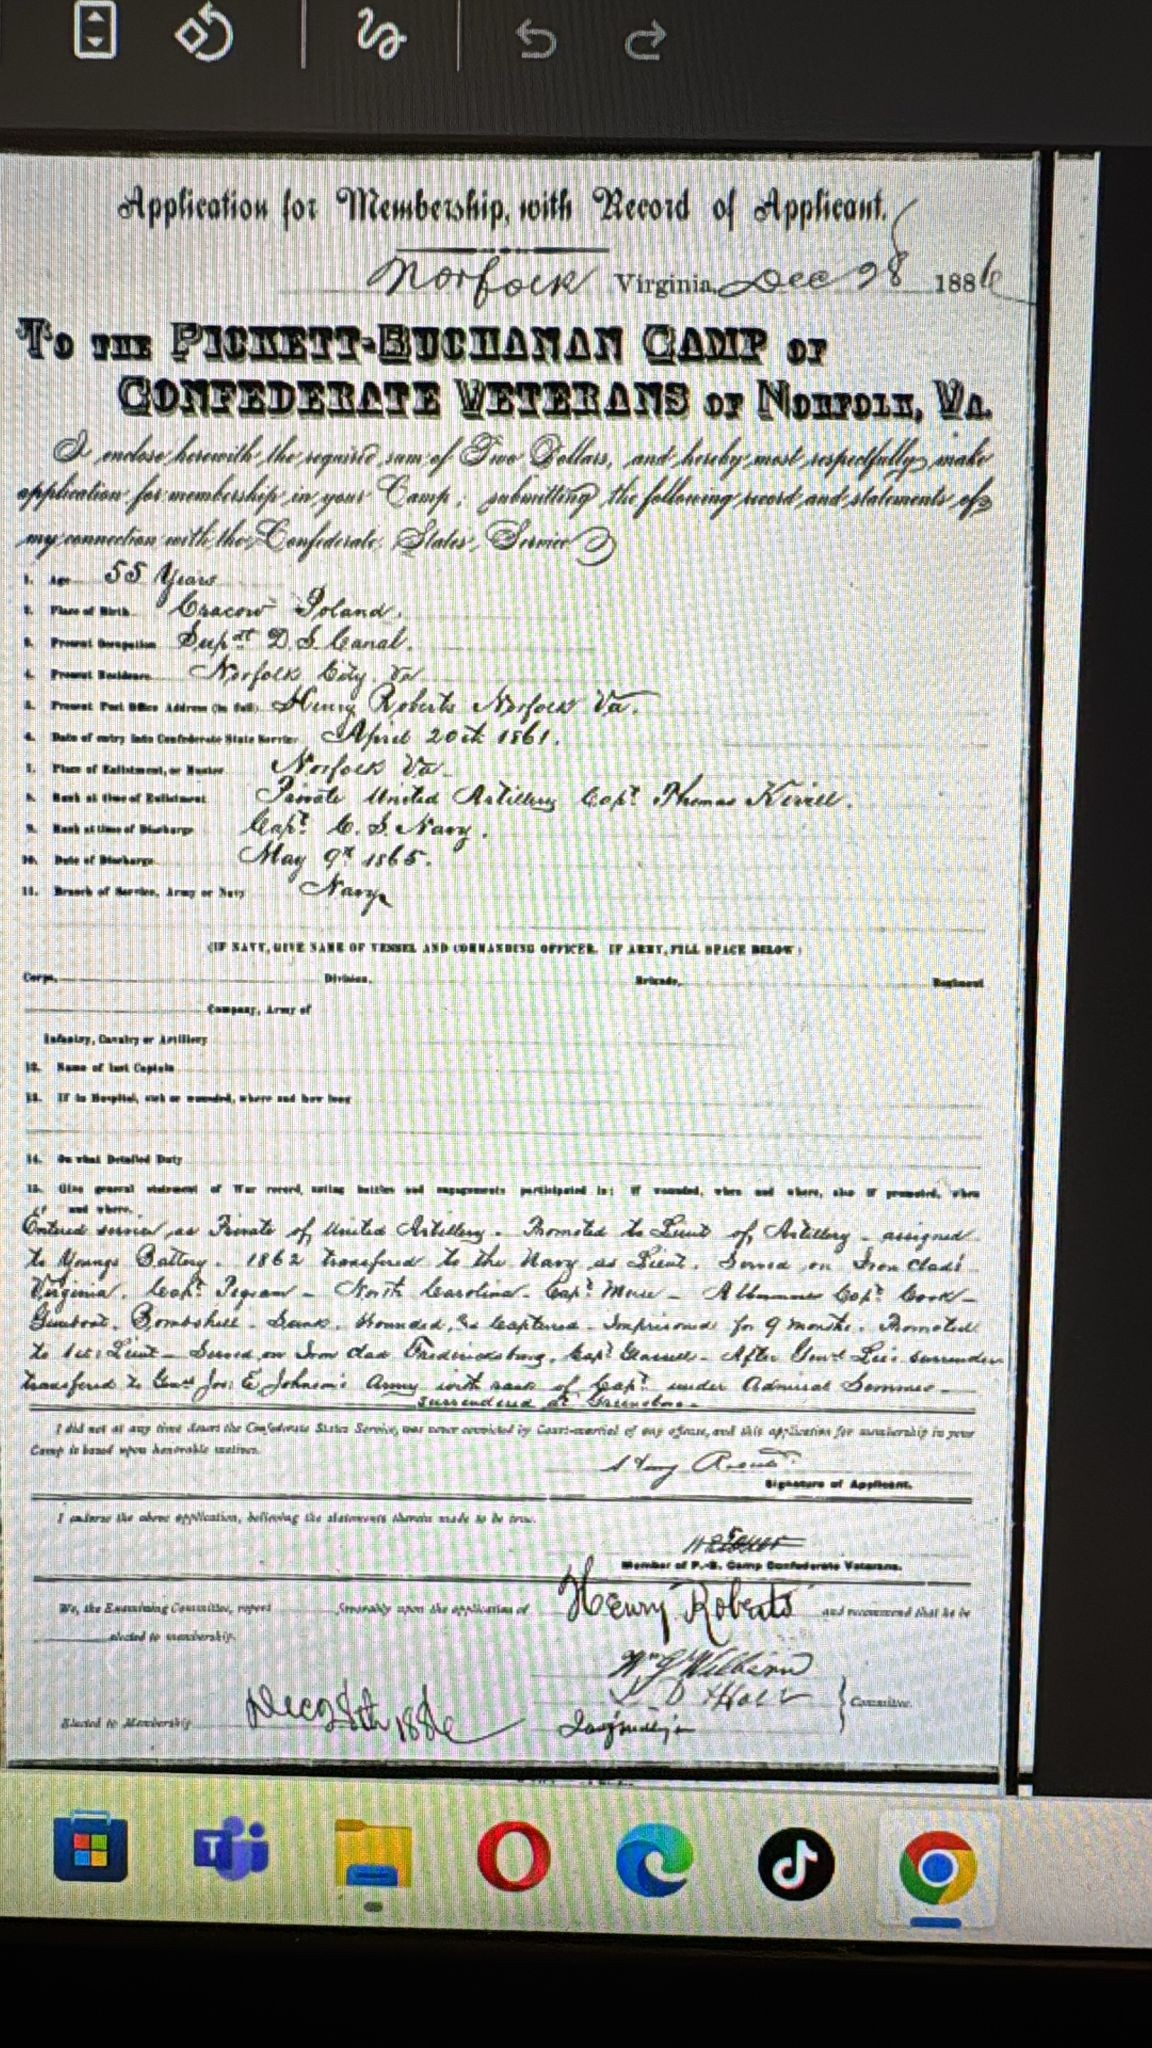 Application for Membership, with Record of Applicant.
Norfolk Virginia, Dec 28 1886
TO THE PICKETT-BUCHANAN CAMP OF
CONFEDERATE VETERANS OF NORFOLK, VA.
I enclose herewith the required sum of Two Dollars, and hereby most respectfully make
application for membership in your Camp; submitting the following record and statements of
my connection with the Confederate States Service
1. Age 55 Years
2. Place of Birth Cracow Poland.
3. Present Occupation Supdt D. S. Canal.
4. Present Residence Norfolk City Va
5. Present Post Office Address (in full) Henry Roberts Norfolk Va.
6. Date of entry into Confederate State Service April 20th 1861.
7. Place of Enlistment, or Muster Norfolk Va
8. Rank at time of Enlistment Private United Artillery Capt. Thomas Kevill.
9. Rank at time of Discharge Capt. C. S. Navy.
10. Date of Discharge May 9th 1865.
11. Branch of Service, Army or Navy Navy
(IF NAVY, GIVE NAME OF VESSEL AND COMMANDING OFFICER. IF ARMY, FILL SPACE BELOW)
Corps, Division, Brigade, Regiment
Company, Army of
Infantry, Cavalry or Artillery
12. Name of last Captain
13. If in Hospital, sick or wounded, where and how long
14. On what Detailed Duty
15. Give general statement of War record, noting battles and engagements participated in; if wounded, when and where, also if promoted, when
and where.
Entered service as Private of United Artillery. Promoted to Lieut of Artillery - assigned
to Youngs Battery. 1862 transfered to the Navy as Lieut. Served on Iron clads
Virginia. Capt. Pegram - North Carolina. Capt. Muse - Capt. Cook -
Gunboat. Bombshell. Sunk. Wounded, & Captured. Imprisoned for 9 months. Promoted
to 1st Lieut - Served on Iron clad Fredericksburg. Capt. - After Genl Lee's surrender
transfered to Genl Jos: E. Johnson's Army with rank of Capt. under Admiral Semmes -
surrendered at Greensboro.
I did not at any time desert the Confederate States Service, was never convicted by Court-martial of any offense, and this application for membership in your
Camp is based upon honorable motives.
Henry
Signature of Applicant.
I endorse the above application, believing the statements therein made to be true.
Member of P.-B. Camp Confederate Veterans.
We, the Examining Committee, report favorably upon the application of Henry Roberts and recommend that he be
elected to membership.
Committee.
Elected to Membership Dec 28th 1886